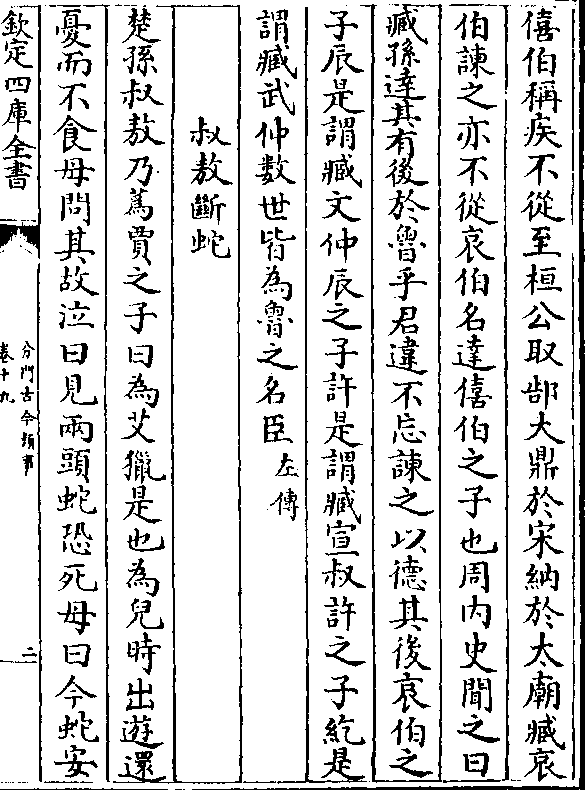 僖伯稱疾不從至桓公取郜大鼎於宋納於太廟臧哀
伯諫之亦不從哀伯名達僖伯之子也周内史聞之曰
臧孫達其有後於魯乎君違不忘諫之以德其後哀伯之
子辰是謂臧文仲辰之子許是謂臧宣叔許之子紇是
謂臧武仲数世皆為魯之名臣左傳
叔敖斷蛇
楚孫叔敖乃蒍賈之子曰為艾獵是也為兒時出遊還
憂而不食母問其故泣曰見兩頭蛇恐死母曰今蛇安
欽定四庫全書
分門古今類事
卷十九
二